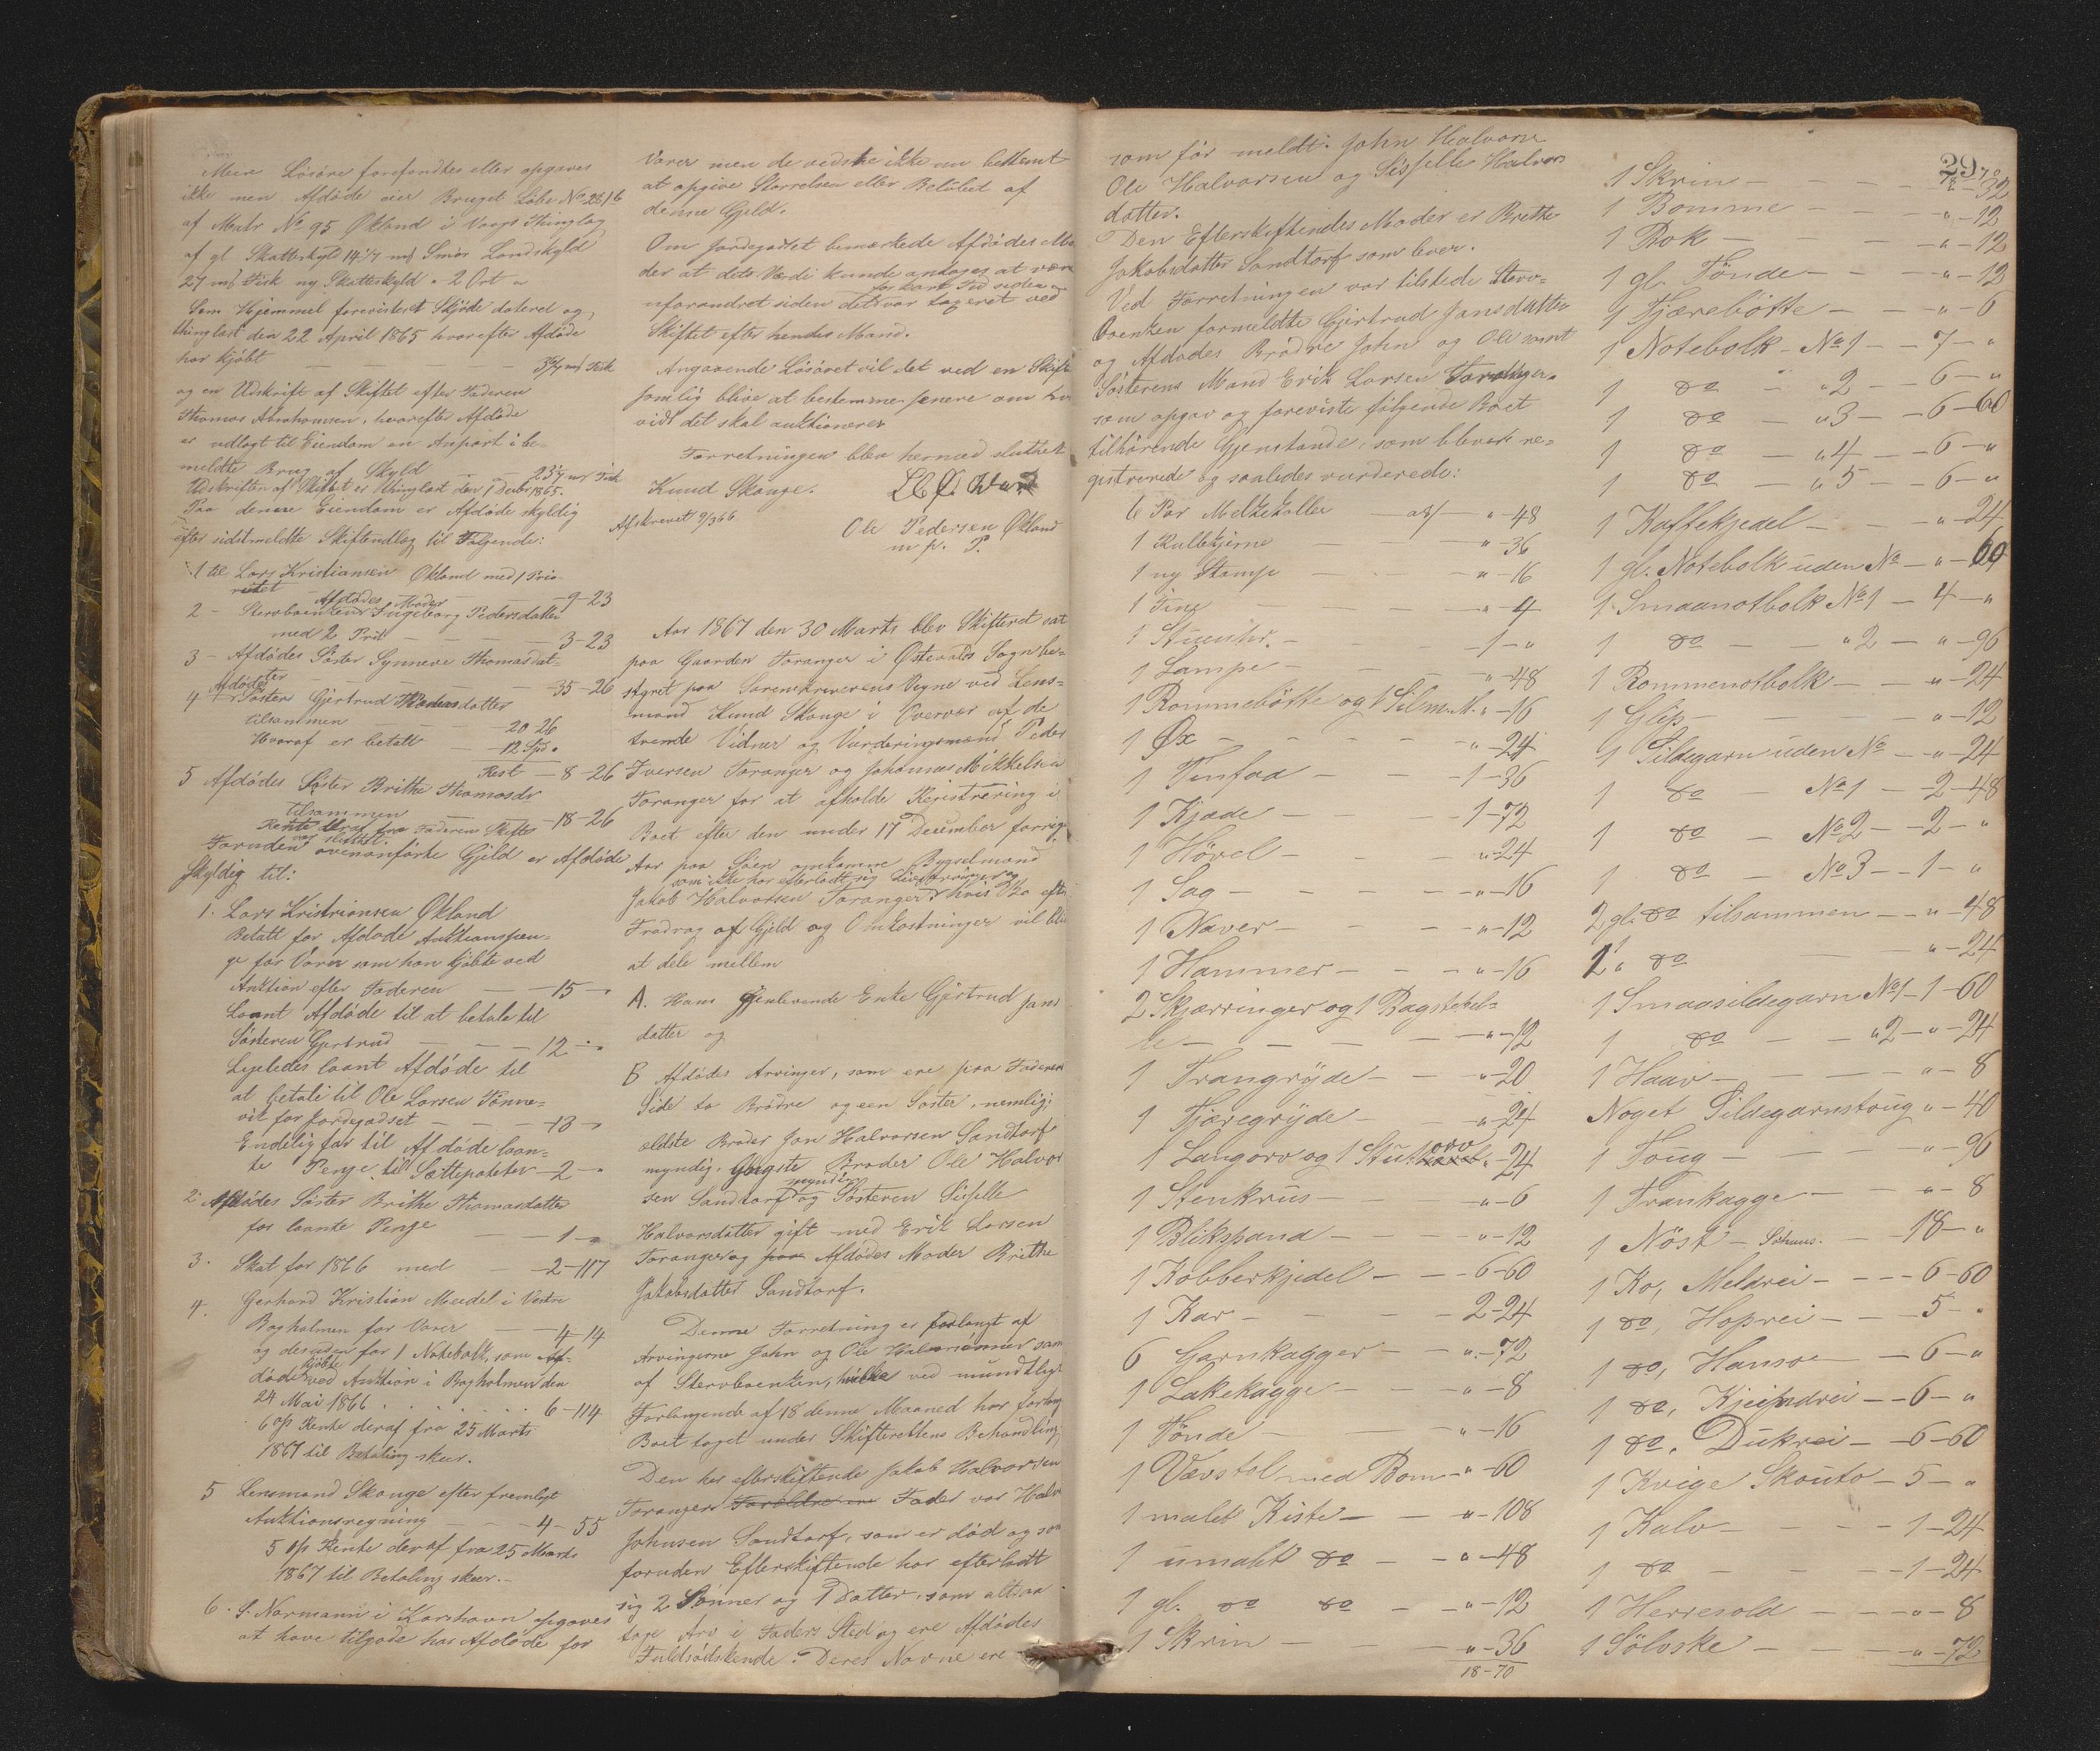 Mere Løsøre forefandtes eller opgaves
ikke men Afdøde eier Bruget Løbe No 281b
af Matr No 95 Økland i Vaags Thinglag
af gl Skatteskyld 14 1/7 mk Smør Landskyld
27 mk Fisk ny Skatteskyld " 2 Ort "
Som Hjemmel forevistes 1 Skjøde dateret og
thinglæst den 22 April 1865 hvorefter Afdøde
har kjøbt — mk Fisk
og en Udskrift af Skiftet efter Faderen
Thomas Abrahamsen, hvorefter Afdøde
er udlagt til Eiendom en Anpart i be-
meldte Brug af Skyld — 23 1/7 mk Fisk
Udskriften af Skiftet er thinglæst den 1 Decbr 1865.
Paa denne Eiendom er Afdøde skyldig
efter sidstmeldte Skifteudlæg til Følgende:
1 til Lars Kristiansen Økland med 1 Prio-
ritet — 9-23
2 - Stervboenken Afdødes Moder Ingeborg Pedersdatter
med 2 Prit — 3-23
3 - Afdødes Søster Synneve Thomasdat-
ter — 35-26
4 - Afdødes Søster Gjertrud Thomasdatter
tilsammen — 20 26
Hvoraf er betalt — 12 Spd "
Rest — 8-26
5 Afdødes Søster Brithe Thomasdr
tilsammen — 18-26
Rente deraf fra Faderens Skifte
var sluttet.
Foruden ovenanførte Gjeld er Afdøde
skyldig til:
1. Lars Kristiansen Økland
Betalt for Afdøde Auktionspen-
ge for Varer som han kjøbte ved
Auktion efter Faderen — 15 - "
Laant Afdøde til at betale til
Søsteren Gjertrud — 12 - "
Ligeledes laant Afdøde til
at betale til Ole Larsen Tønne-
vik for Jordegodset — 13 - "
Endelig før til Afdøde laan-
te Penge til Sættepoteter — 2 - "
2. Afdødes Søster Brithe Thomasdatter
for laante Penge — 1 - "
3. Skat for 1866 med — 2-117
4. Gerhard Kristian Meidel i Vestre
Bagholmen for Varer — 4-14
og desuden for 1 Notebolk, som Af-
døde kjøbte ved Auktion i Bagholmen den
24 Mai 1866 . . . . 6-114
6 o/o Rente deraf fra 25 Marts
1867 til Betaling skeer.
5 Lensmand Skauge efter fremlagt
Auktionsregning — 4-55
5 o/o Rente deraf fra 25 Marts
1867 til Betaling skeer.-
6. S. Normann i Karshavn opgaves
at have tilgode hos Afdøde for
Varer men de vedste ikke nu bestemt
at opgive Størrelsen eller Beløbet af
denne Gjeld.
Om Jordegodset bemærkede Afdødes Mo
der at dets Værdi kunde antages at være
uforandret siden det for kort Tid siden var taxeret ved
Skiftet efter hendes Mand.
Angaaende Løsøret vil det ved en Skifte
samling blive at bestemme senere om hvor
vidt det skal auktioneres
Forretningen blev hermed sluttet
Knud Skauge.
Afskrevet 9/3 66
Ole Pedersen Økland
m. p. P.
Aar 1867 den 30 Marts blev Skifteret sat
paa Gaarden Toranger i Østevolds Sogn be-
styret paa Sorenskriverens Vegne ved Lens-
mand Knud Skauge i Overvær af de
tvende Vidner og Vurderingsmænd Peder
Iversen Toranger og Johannes Mikkelsen
Toranger for at afholde Registrering i
Boet efter den under 17 December forrige
Aar paa Søen omkomne Bygselmand
Jakob Halvorsen Toranger som ikke har efterladt sig Livsarvinger og hvis Bo efter
Fradrag af Gjeld og Omkostninger vil blive
at dele mellem
A. Hans Gjenlevende Enke Gjertrud Jans
datter og
B Afdødes Arvinger, som ere paa Faderens
Side to Brødre og een Søster, nemlig:
ældste Broder Jon Halvorsen Sandtorf
myndig. Yngste Broder Ole Halvor
sen Sandtorf myndig og Søsteren Sisselle
Halvorsdatter gift med Erik Larsen
Toranger og paa Afdødes Moder Brithe
Jakobsdatter Sandtorf.
Denne Forretning er forlangt af
Arvingerne John og Ole Halvorsønner samt
af Stervboenken, hvilke ved mundtlig
Forlangende af 18 denne Maaned har forlangt
Boet taget under Skifterettens Behandling
Den her efterskiftende Jakob Halvorsen
Torangers Forældre ere Fader var Halvor
Johnsen Sandtorf, som er død og som
foruden Efterskiftende har efterladt
sig 2 Sønner og 1 Datter, som altsaa
tage Arv i Faders Sted og ere Afdødes
Fuldsødskende. Deres Navne ere
som før meldt: John Halvorsen
Ole Halvorsen og Sisselle Halvors
datter.
Den Efterskiftendes Moder er Brithe
Jakobsdatter Sandtorf som lever.
Ved Forretningen var tilstede Sterv-
boenken formeldte Gjertrud Jansdatter
og Afdødes Brødre John og Ole samt
Søsterens Mand Erik Larsen Toranger.
som opgav og foreviste følgende Boet
tilhørende Gjenstande, som bleve re-
gistrerede og saaledes vurderede:
6 Par Melkekoller — " -48
1 Rullekjerne — " -36
1 ny Stamp — " -16
1 Fine — " - 4
1 Stueuhr. — 1 - "
1 Lampe — " -48
1 Rommebøtte og 1 Sil m. M. " -16
1 Øx — " -24
1 Tinfad — 1-36
1 Kjæde — 1-72
1 Høvel — " -24
1 Sag — " -16
1 Naver — " -12
1 Hammer — " -16
2 Skjærringer og 1 Bagstefjel-
le — " -12
1 Trangryde — " -20
1 Tjæregryde — " -24
1 Langorv og 1 Stutorv " -24
1 Stenkrus — " - 6
1 Blikspand — " -12
1 Kobberkjedel — 6-60
1 Kar — 2-24
6 Garnkagger — " -72
1 Lakekagge — " - 8
1 Tønde — " -16
1 Vævstol med Bom — " -60
1 malet Kiste — " -108
1 umalt do — " -48
1 gl. do do — " -12
1 Skrin — " -36
18-70
29
1 Skrin — -32
1 Bomme — " -12
1 Rok — " -12
1 gl. Tønde — " -12
1 Tjærebøtte — " - 6
1 Notebolk - No 1 — 7 - "
1 do — " 2 — 6 - "
1 do — " 3 — 6-60
1 do — " 4 — 6 - "
1 do — " 5 — 6 - "
1 Kaffekjedel — " -24
1 gl. Notebolk uden No — " -60
1 Smaanotbolk No 1 — 4 - "
1 do — " 2 — " -96
1 Rommenotbolk — " -24
1 Glip — " -12
1 Sildegarn uden No — " -24
1 do — No 1 — 2-48
1 do — No 2 — 2 - "
1 do — No 3 — 1 - "
2 gl. do tilsammen — " -48
1 " do — " -24
1 Smaasildegarn No 1 - 1-60
1 do — " 2 — " -24
1 Haav — " - 8
Noget Sildegarnstoug " -40
1 Toug — " -96
1 Trankagge — " - 8
1 Nøst — 18 - "
1 Ko, Meldrei — 6-60
1 do, Hoprei — 5 - "
1 do, — 6 - "
1 do, — 6 - "
1 do, Dukrei — 6-60
1 Kvige Skouto — 5 - "
1 Kalv — 1-24
1 do — 1-24
1 Herresold — " - 8
1 Sølvske — " -72